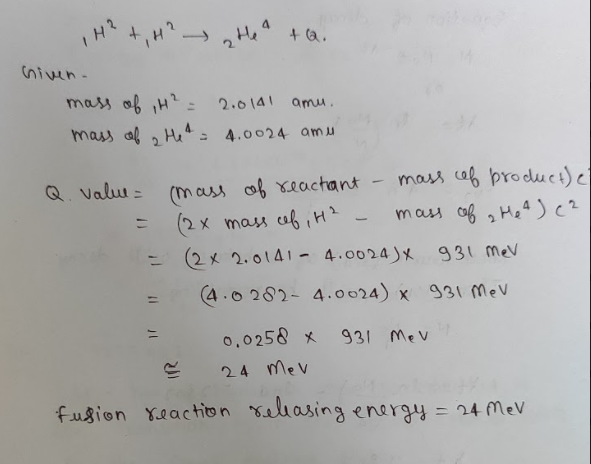 ₁H² + ₁H² → ₂He⁴ + Q.
Given -
mass of ₁H² = 2.0141 amu.
mass of ₂He⁴ = 4.0024 amu
Q. value = (mass of reactant - mass of product) c²
= (2 x mass of ₁H² - mass of ₂He⁴) c²
= (2 x 2.0141 - 4.0024) x 931 MeV
= (4.0282 - 4.0024) x 931 MeV
= 0.0258 x 931 MeV
≅ 24 MeV
fusion reaction releasing energy = 24 MeV